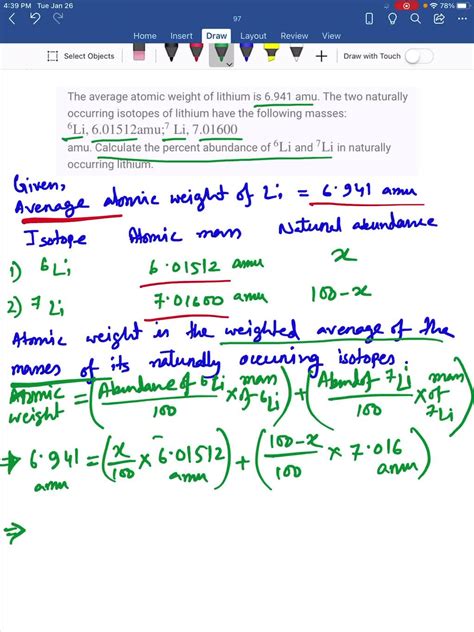 4:39 PM Tue Jan 26
78%
97
Home Insert Draw Layout Review View
Select Objects
Draw with Touch
The average atomic weight of lithium is 6.941 amu. The two naturally
occurring isotopes of lithium have the following masses:
⁶Li, 6.01512amu;⁷ Li, 7.01600
amu. Calculate the percent abundance of ⁶Li and ⁷Li in naturally
occurring lithium.
Given,
Average atomic weight of Li = 6.941 amu
Isotope Atomic mass Natural abundance
1) ⁶Li 6.01512 amu x
2) ⁷Li 7.01600 amu 100-x
Atomic weight is the weighted average of the
masses of its naturally occuring isotopes.
Atomic weight = (Abundance of 6Li / 100 × mass of 6Li) + (Abund of ⁷Li / 100 × mass of ⁷Li)
⇒ 6.941 amu = (x/100 × 6.01512 amu) + (100-x/100 × 7.016 amu)
⇒